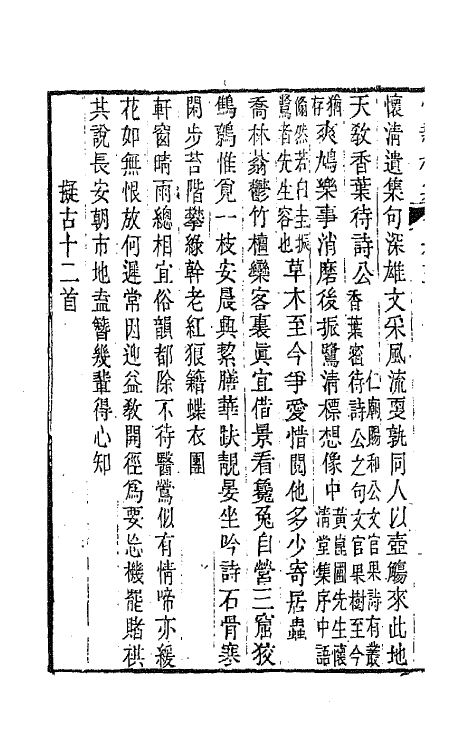 懷清遺集句深雄文采風流更孰同人以壺觴來此地
天教香葉待詩公仁廟賜和公文官果詩有叢香葉密待詩公之句文官果樹至今
猶存爽鳩樂事消磨後振鷺清標想像中黃崑國先生懷清堂集序中語
翛然若自圭振鷺者先生容也草木至今爭愛惜閱他多少寄居蟲
喬林蓊鬱竹檀欒客裏眞宜借景看毚兔自營三窟狡
鷦鷯惟覓一枝安晨興絜膳華趺靚晏坐吟詩石骨寒
閑步苔階攀綠幹老紅狼籍蝶衣團
軒窗晴雨總相宜俗韻都除不待醫鶯似有情啼亦緩
花如無恨放何遲常因迎益敎開徑爲要忘機罷賭棋
其說長安朝市地盍簪幾輩得心知
擬古十二首